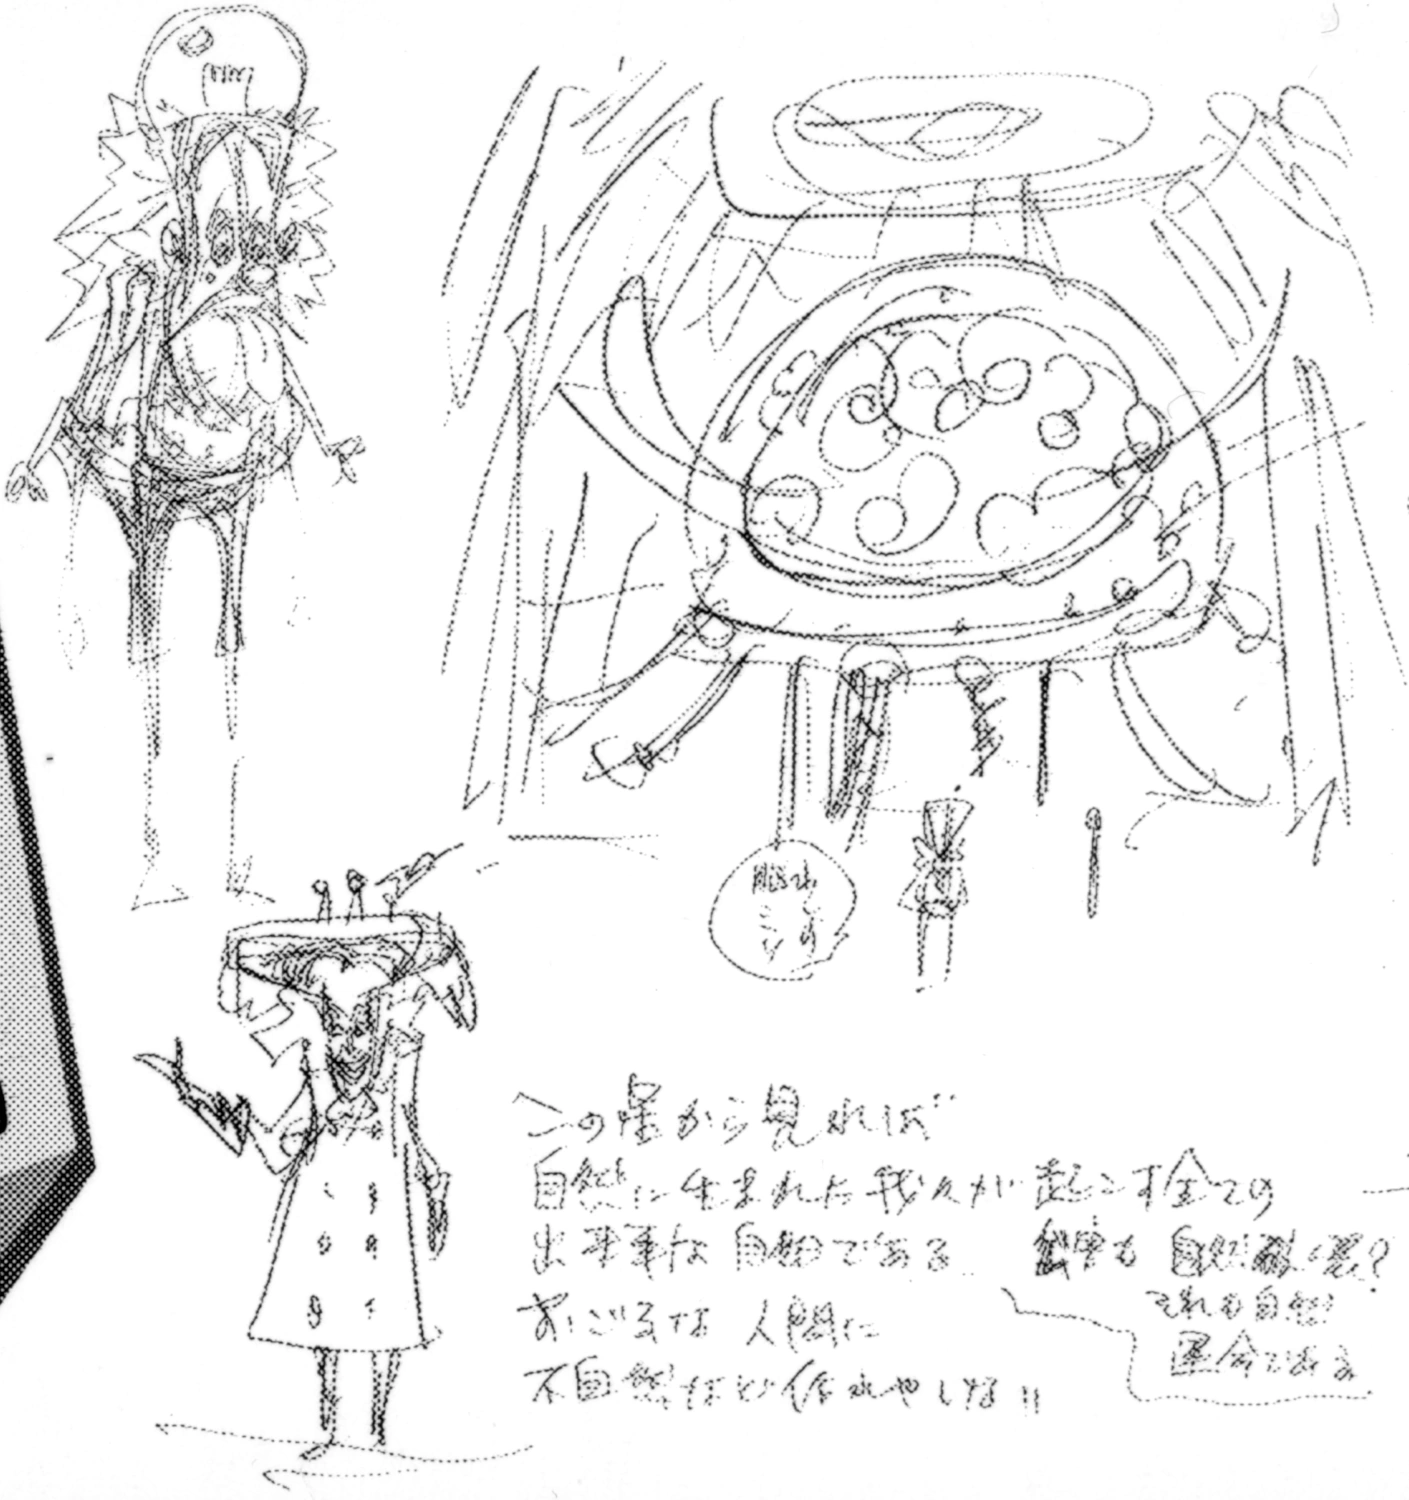 この星から見れば
自然に生まれた我々が起こす全ての
出来事は自然である
おごるな人間に
不自然など作れやしない!!
戦争も自然破壊?
それも自然
運命である